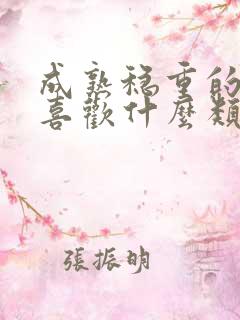 成熟穩重的
喜歡什麼類
張振明